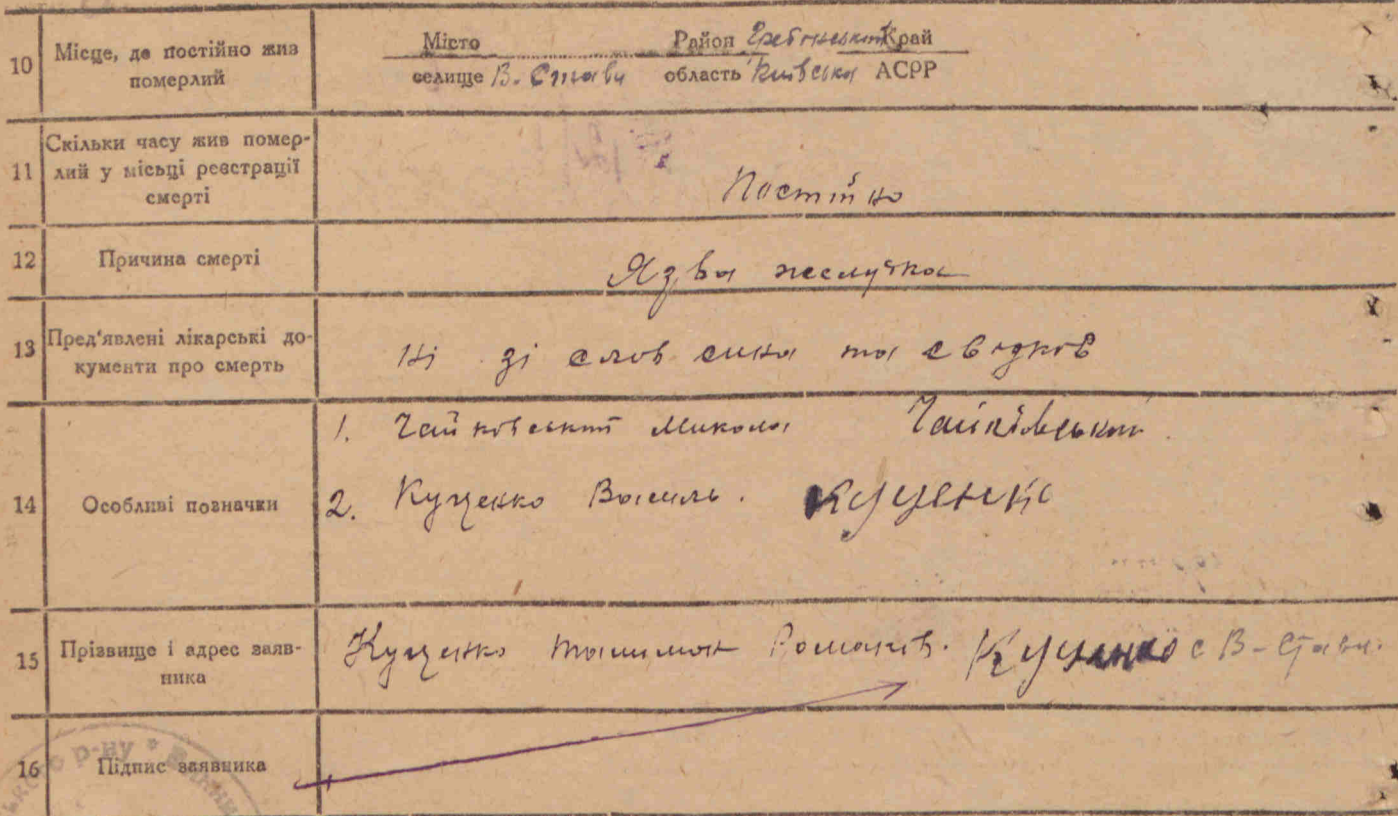 10 Місце, де постійно жив Місто Район Гребінський Край
померлий селище В. Стави область Київська АСРР
Скільки часу жив помер-
11 лий у місьці реєстрації
смерті Постійно
12 Причина смерті Язва желудка
13 Пред'явлені лікарські до-
кументи про смерть Ні зі слов сина та свідків
1. Чайковський Микола Чайківський
14 Особливі позначки 2. Куценко Василь. Куценко
15 Прізвище і адрес заяв- Куценко Романов. Куценко с В-Стави.
ника
16 Підпис заявника
р-ну *